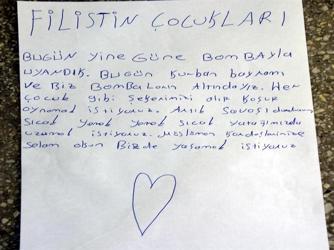 FiLiSTiN ÇOCUKLARI
BUGÜN Yine Güne BomBAyla
UYANDIK. BuGün Kurban bayramı
Ve Biz BombaLarın Altındayız. Her
Çocuk gibi Şekerimizi alıp Koşup
oynamak istiyoruz. Artık Savaşı durdurun
Sıcak Yemek Yemek Sıcak yatağımızda
uzanmak istiyoruz. Müslüman Kardeşlerimize
Selam olsun Bizde yaşamak istiyoruz